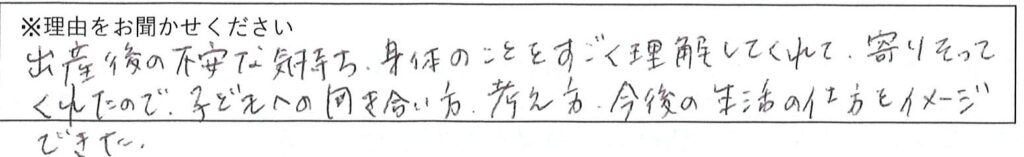 ※理由をお聞かせください
出産後の不安な気持ち、身体のことをすごく理解してくれて、寄りそって
くれたので、子どもへの向き合い方、考え方、今後の生活の仕方をイメージ
できた。